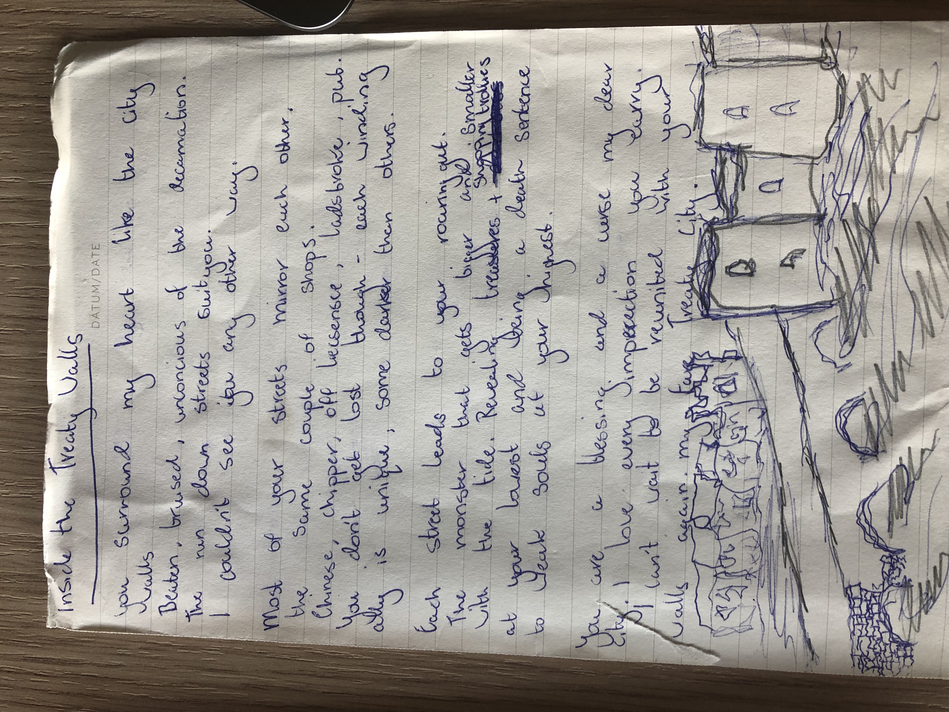 Inside the Treaty Walls
DATUM/DATE
You surround my heart like the city
Walls
Beaten, bruised, unconcious of the decamation.
The run down streets suit you.
I couldn't see you any other way.
Most of your streets mirror each other,
the same couple of shops.
Chinesse, chipper, off liesense, ladsbroke, pub.
You don't get lost though - each winding
ally is unique, some darker then others.
Each street leads to your roaring gut.
The monster that gets bigger and smaller
with the tide. Revealing treasures + shopping trollies
at your lowest and being a death sentence
to weak souls at your highest.
You are a blessing and a curse my dear
City, I love every imperection you carry.
I can't wait to be reunited with your
walls again. my fare Treaty City.